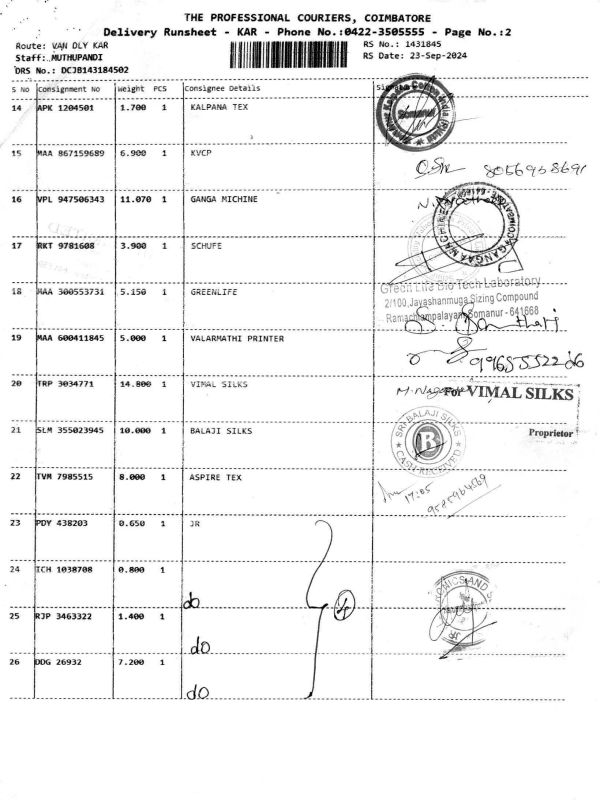 THE PROFESSIONAL COURIERS, COIMBATORE
Delivery Runsheet - KAR - Phone No.:0422-3505555 - Page No.:2
Route: VAN DLY KAR RS No.: 1431845
Staff: MUTHUPANDI RS Date: 23-Sep-2024
DRS No.: DCJB143184502
S No Consignment No Weight PCS Consignee Details
14 APK 1204501 1.700 1 KALPANA TEX
Somanur
15 MAA 867159689 6.900 1 KVCP
8056958691
16 VPL 947506343 11.070 1 GANGA MICHINE
17 RKT 9781608 3.900 1 SCHUFE
18 MAA 300553731 5.150 1 GREENLIFE
Green Life Bio Tech Laboratory
2/100,Jayashanmuga Sizing Compound
Ramachiampalayam, Somanur - 641668
19 MAA 600411845 5.000 1 VALARMATHI PRINTER
9965555226
20 TRP 3034771 14.800 1 VIMAL SILKS
For VIMAL SILKS
Proprietor
21 SLM 355023945 10.000 1 BALAJI SILKS
SRI BALAJI SILKS
B
CASH RECEIVED
22 TVM 7985515 8.000 1 ASPIRE TEX
17:05
9585964569
23 PDY 438203 0.650 1 JR
24 ICH 1038708 0.800 1
do
4
25 RJP 3463322 1.400 1
do
26 DDG 26932 7.200 1
do